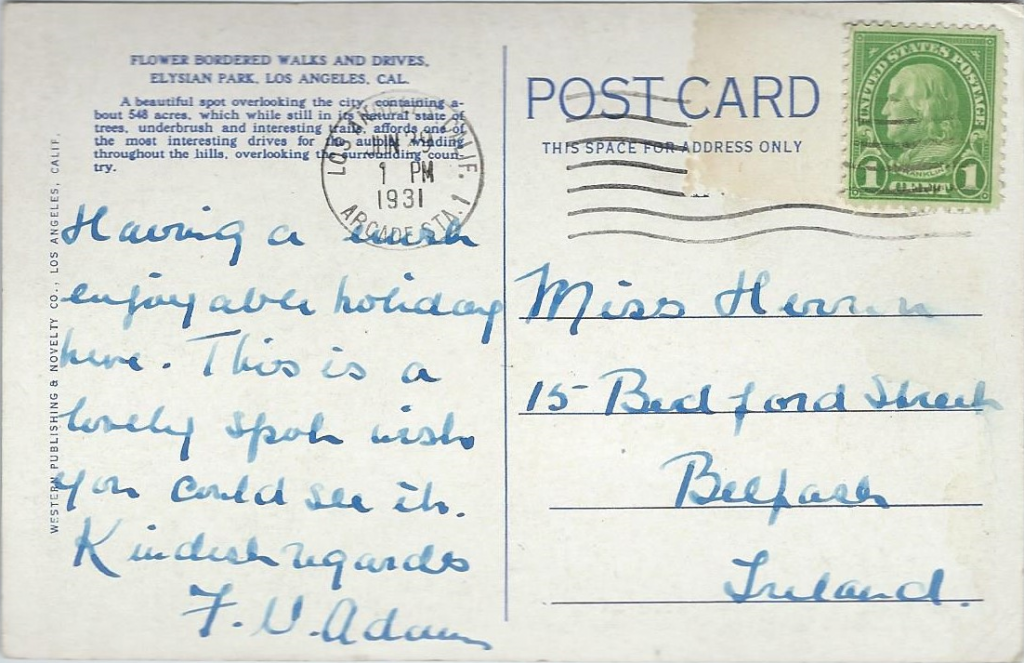 FLOWER BORDERED WALKS AND DRIVES,
ELYSIAN PARK, LOS ANGELES, CAL.
A beautiful spot overlooking the city, containing a-
bout 548 acres, which while still in its natural state of
trees, underbrush and interesting trails, affords one of
the most interesting drives for the autoist winding
throughout the hills, overlooking the surrounding coun-
try.
WESTERN PUBLISHING & NOVELTY CO., LOS ANGELES, CALIF.
LOS ANGELES, CALIF.
JUN
1 PM
1931
ARCADE STA. 1
Having a much
enjoyable holiday
here. This is a
lovely spot wish
you could see it.
Kindest regards
F. V. Adams
POST CARD
THIS SPACE FOR ADDRESS ONLY
UNITED STATES POSTAGE
FRANKLIN
1 1
Miss
15 Bedford Street
Belfast
Ireland.